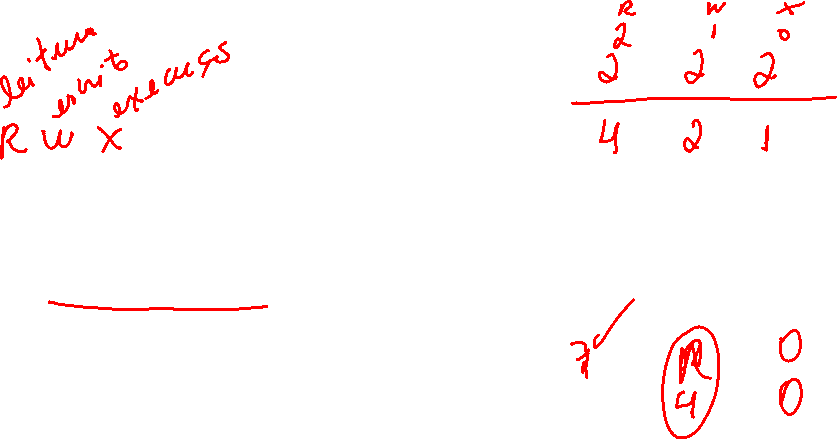 leitura
escrita
execução
R W X
R W X
2 1 0
2 2 2
4 2 1
7 R 0
4 0